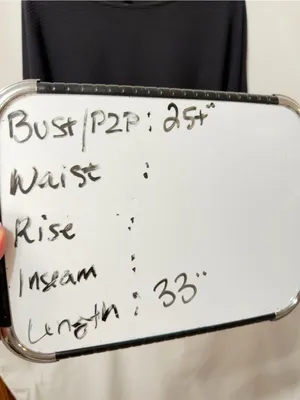 Bust/P2P: 25+"
Waist :
Rise :
Inseam :
Length : 33"